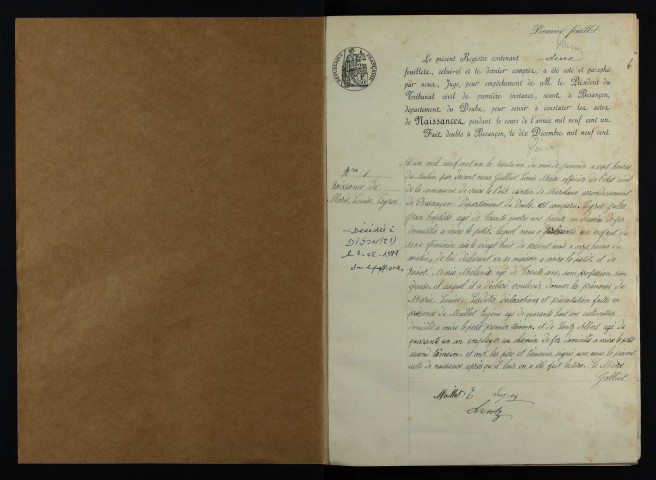 Premier feuillet
6
Le présent Registre contenant deux
feuillets, celui-ci et le dernier compris, a été coté et paraphé
par nous, Juge, pour empêchement de M. le Président du
Tribunal civil de première instance, séant à Besançon,
département du Doubs, pour servir à constater les actes
de Naissances pendant le cours de l'année mil neuf cent un
Fait double à Besançon, le dix Décembre mil neuf cent.
RÉPUBLIQUE FRANÇAISE
N° 1
Naissance de
Marie Louise
Décédée à
DIJON (21)
L'an mil neuf cent un le trente du mois de janvier à sept heures
du matin par devant nous Galliot Louis Maire officier de l'état civil
de la commune de le Petit canton de Marchaux arrondissement
de Besançon Département du Doubs est comparu
Jean baptiste agé de trente quatre ans au chemin de fer
domicilié a le petit, lequel nous a présenté un enfant du
sexe féminin né le vingt huit de présent mois a onze heures du
matin, de lui déclarant en sa maison a le petit et de
Marie Mélanie agé de trente ans, sans profession son
épouse et auquel il a déclaré vouloir donner les prénoms de
Marie Louise. Lesdites déclarations et présentation faites en
présence de Maillot Eugène agé de quarante huit ans cultivateur
domicilié a le petit premier témoin, et de Albert agé de
quarante un an employé au chemin de fer domicilié a le petit
second témoin. et ont, les père et témoins, signé avec nous le présent
acte de naissance après qu'il leur en a été fait lecture. Le Maire
Galliot
Maillot E